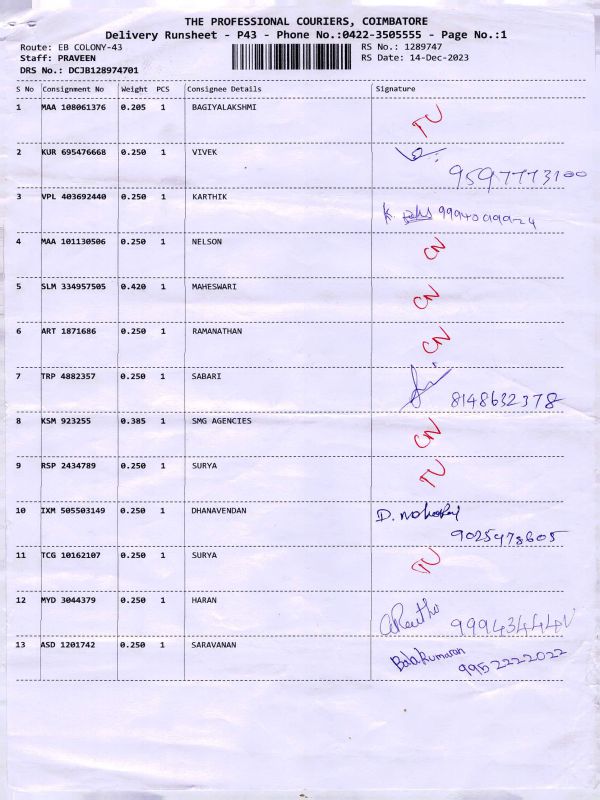 THE PROFESSIONAL COURIERS, COIMBATORE
Delivery Runsheet - P43 - Phone No.:0422-3505555 - Page No.:1
Route: EB COLONY-43 RS No.: 1289747
Staff: PRAVEEN RS Date: 14-Dec-2023
DRS No.: DCJB128974701
S No Consignment No Weight PCS Consignee Details Signature
1 MAA 108061376 0.205 1 BAGIYALAKSHMI TU
2 KUR 695476668 0.250 1 VIVEK
9597773100
3 VPL 403692440 0.250 1 KARTHIK
K.
4 MAA 101130506 0.250 1 NELSON CN
5 SLM 334957505 0.420 1 MAHESWARI CN
6 ART 1871686 0.250 1 RAMANATHAN CN
7 TRP 4882357 0.250 1 SABARI
8148632378
8 KSM 923255 0.385 1 SMG AGENCIES CN
9 RSP 2434789 0.250 1 SURYA TU
10 IXM 505503149 0.250 1 DHANAVENDAN D.
11 TCG 10162107 0.250 1 SURYA TU
12 MYD 3044379 0.250 1 HARAN
13 ASD 1201742 0.250 1 SARAVANAN Balakumaran
9952222022